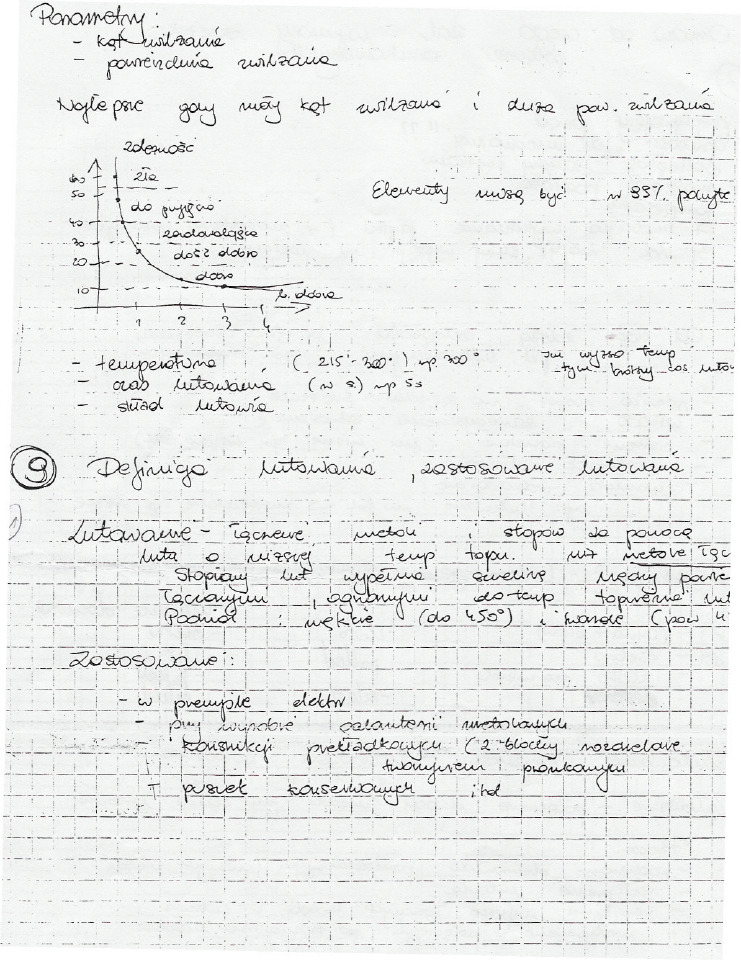 Parametry:
- kąt zwilżania
- powierzchnia zwilżania
Najlepsze gdy mały kąt zwilżania i duża pow. zwilżania
zdolność
60 zła
50 do przyjęcia
40 zadowalająca
30 dość dobra
20 dobra
10 b. dobra
1 2 3 4
Elementy muszą być w 99% pokryte
- temperatura (215°-300°) np 300° im wyższa temp
- czas lutowania (w s) np 5s tym krótszy czas luto
- skład lutowia
9 Definicja lutowania, zastosowanie lutowania
Lutowanie - łączenie metali i stopów za pomocą
luta o niższej temp topn. niż metale łącz
Stopiony lut wypełnia szczelinę między powie
łączonymi, ogrzanymi do temp topnienia lut
Podział: miękkie (do 450°) i twarde (pow 4
Zastosowanie:
- w przemyśle elektr
- przy wyrobie galanterii metalowych
- konstrukcji przekładkowych (2 blachy rozdzielane
tworzywem piankowym
- puszek konserwowych itd